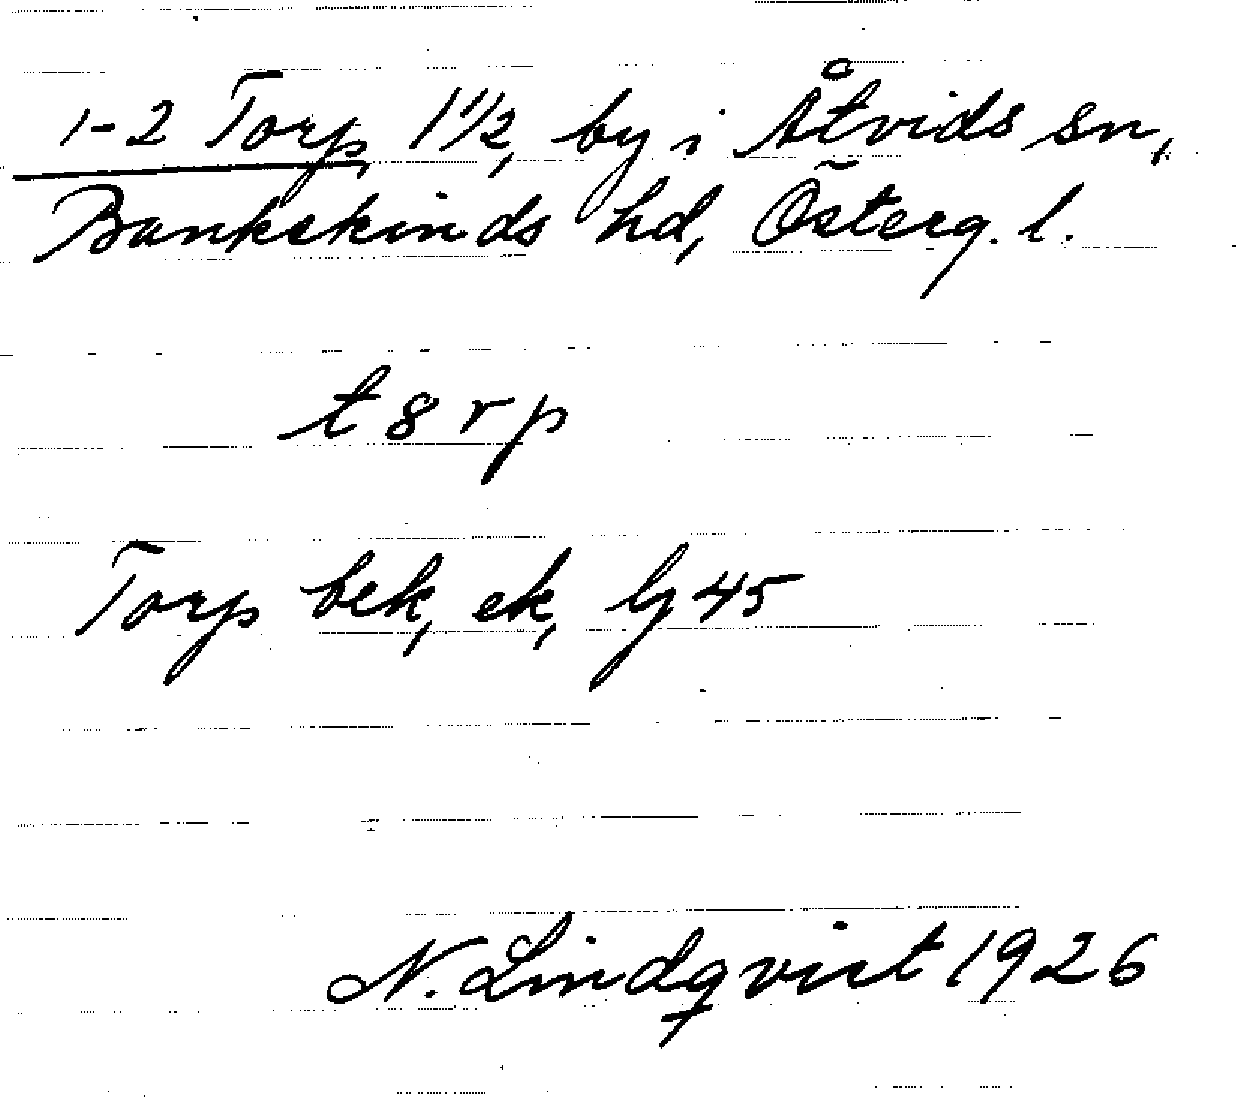 1-2 Torp, 1 1/2, by i Åtvids sn,
Bankekinds hd, Österg. l.
t8rp
Torp bek, ek, lj 45
N. Lindqvist 1926